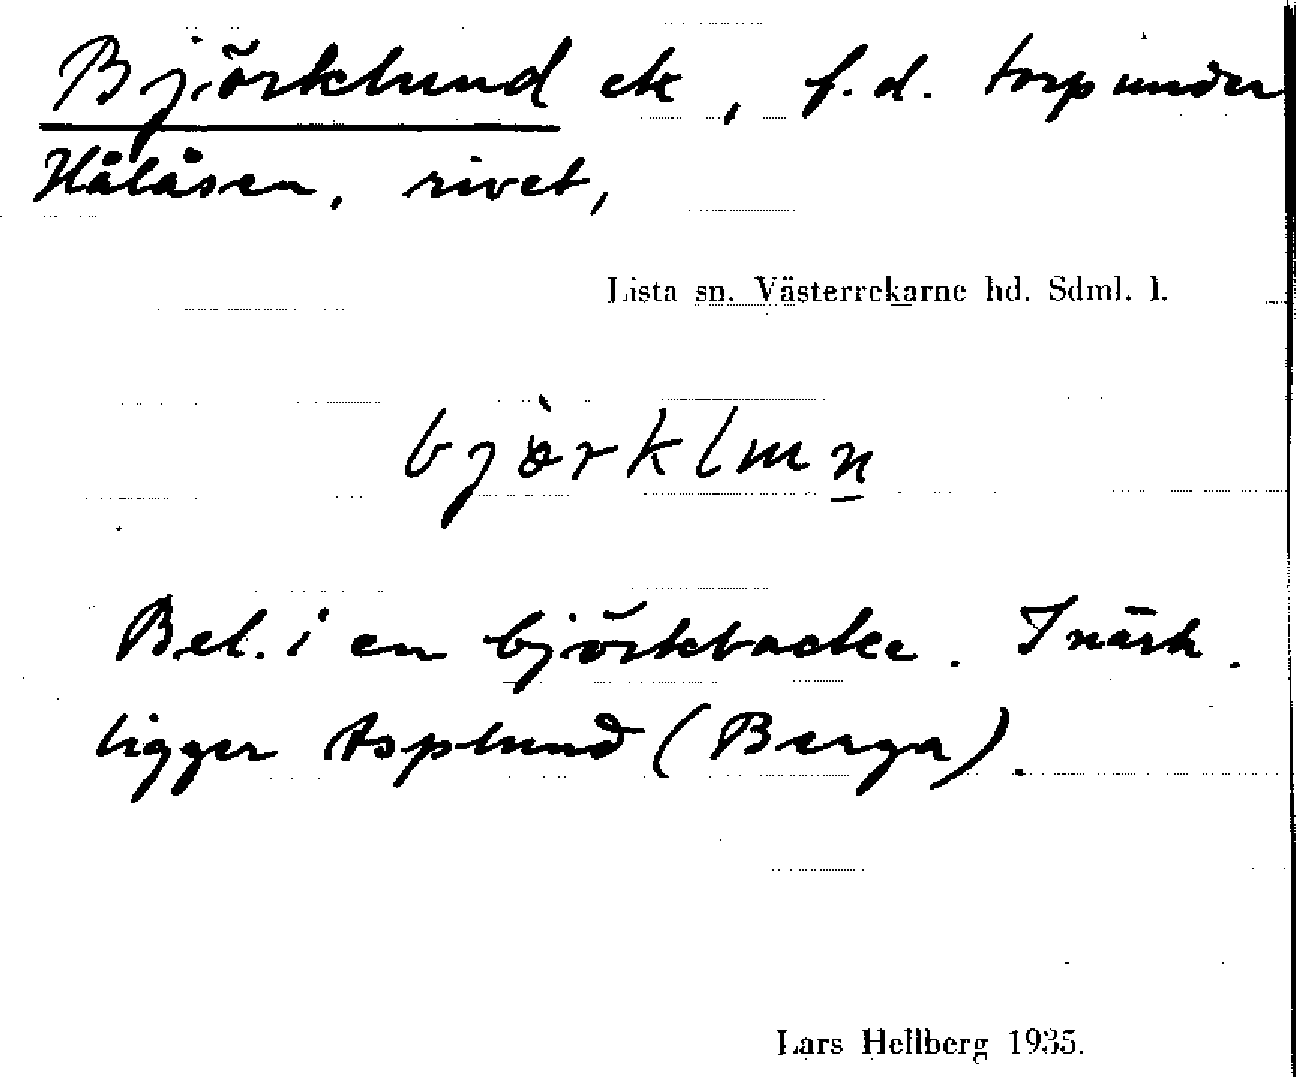 Björklund ek, f.d. torp under
Hålåsen, rivet,
Lista sn. Västerrekarne hd. Sdml. l.
Bel. i en björkbacke. I närh.
ligger Asplund (Berga).
Lars Hellberg 1935.